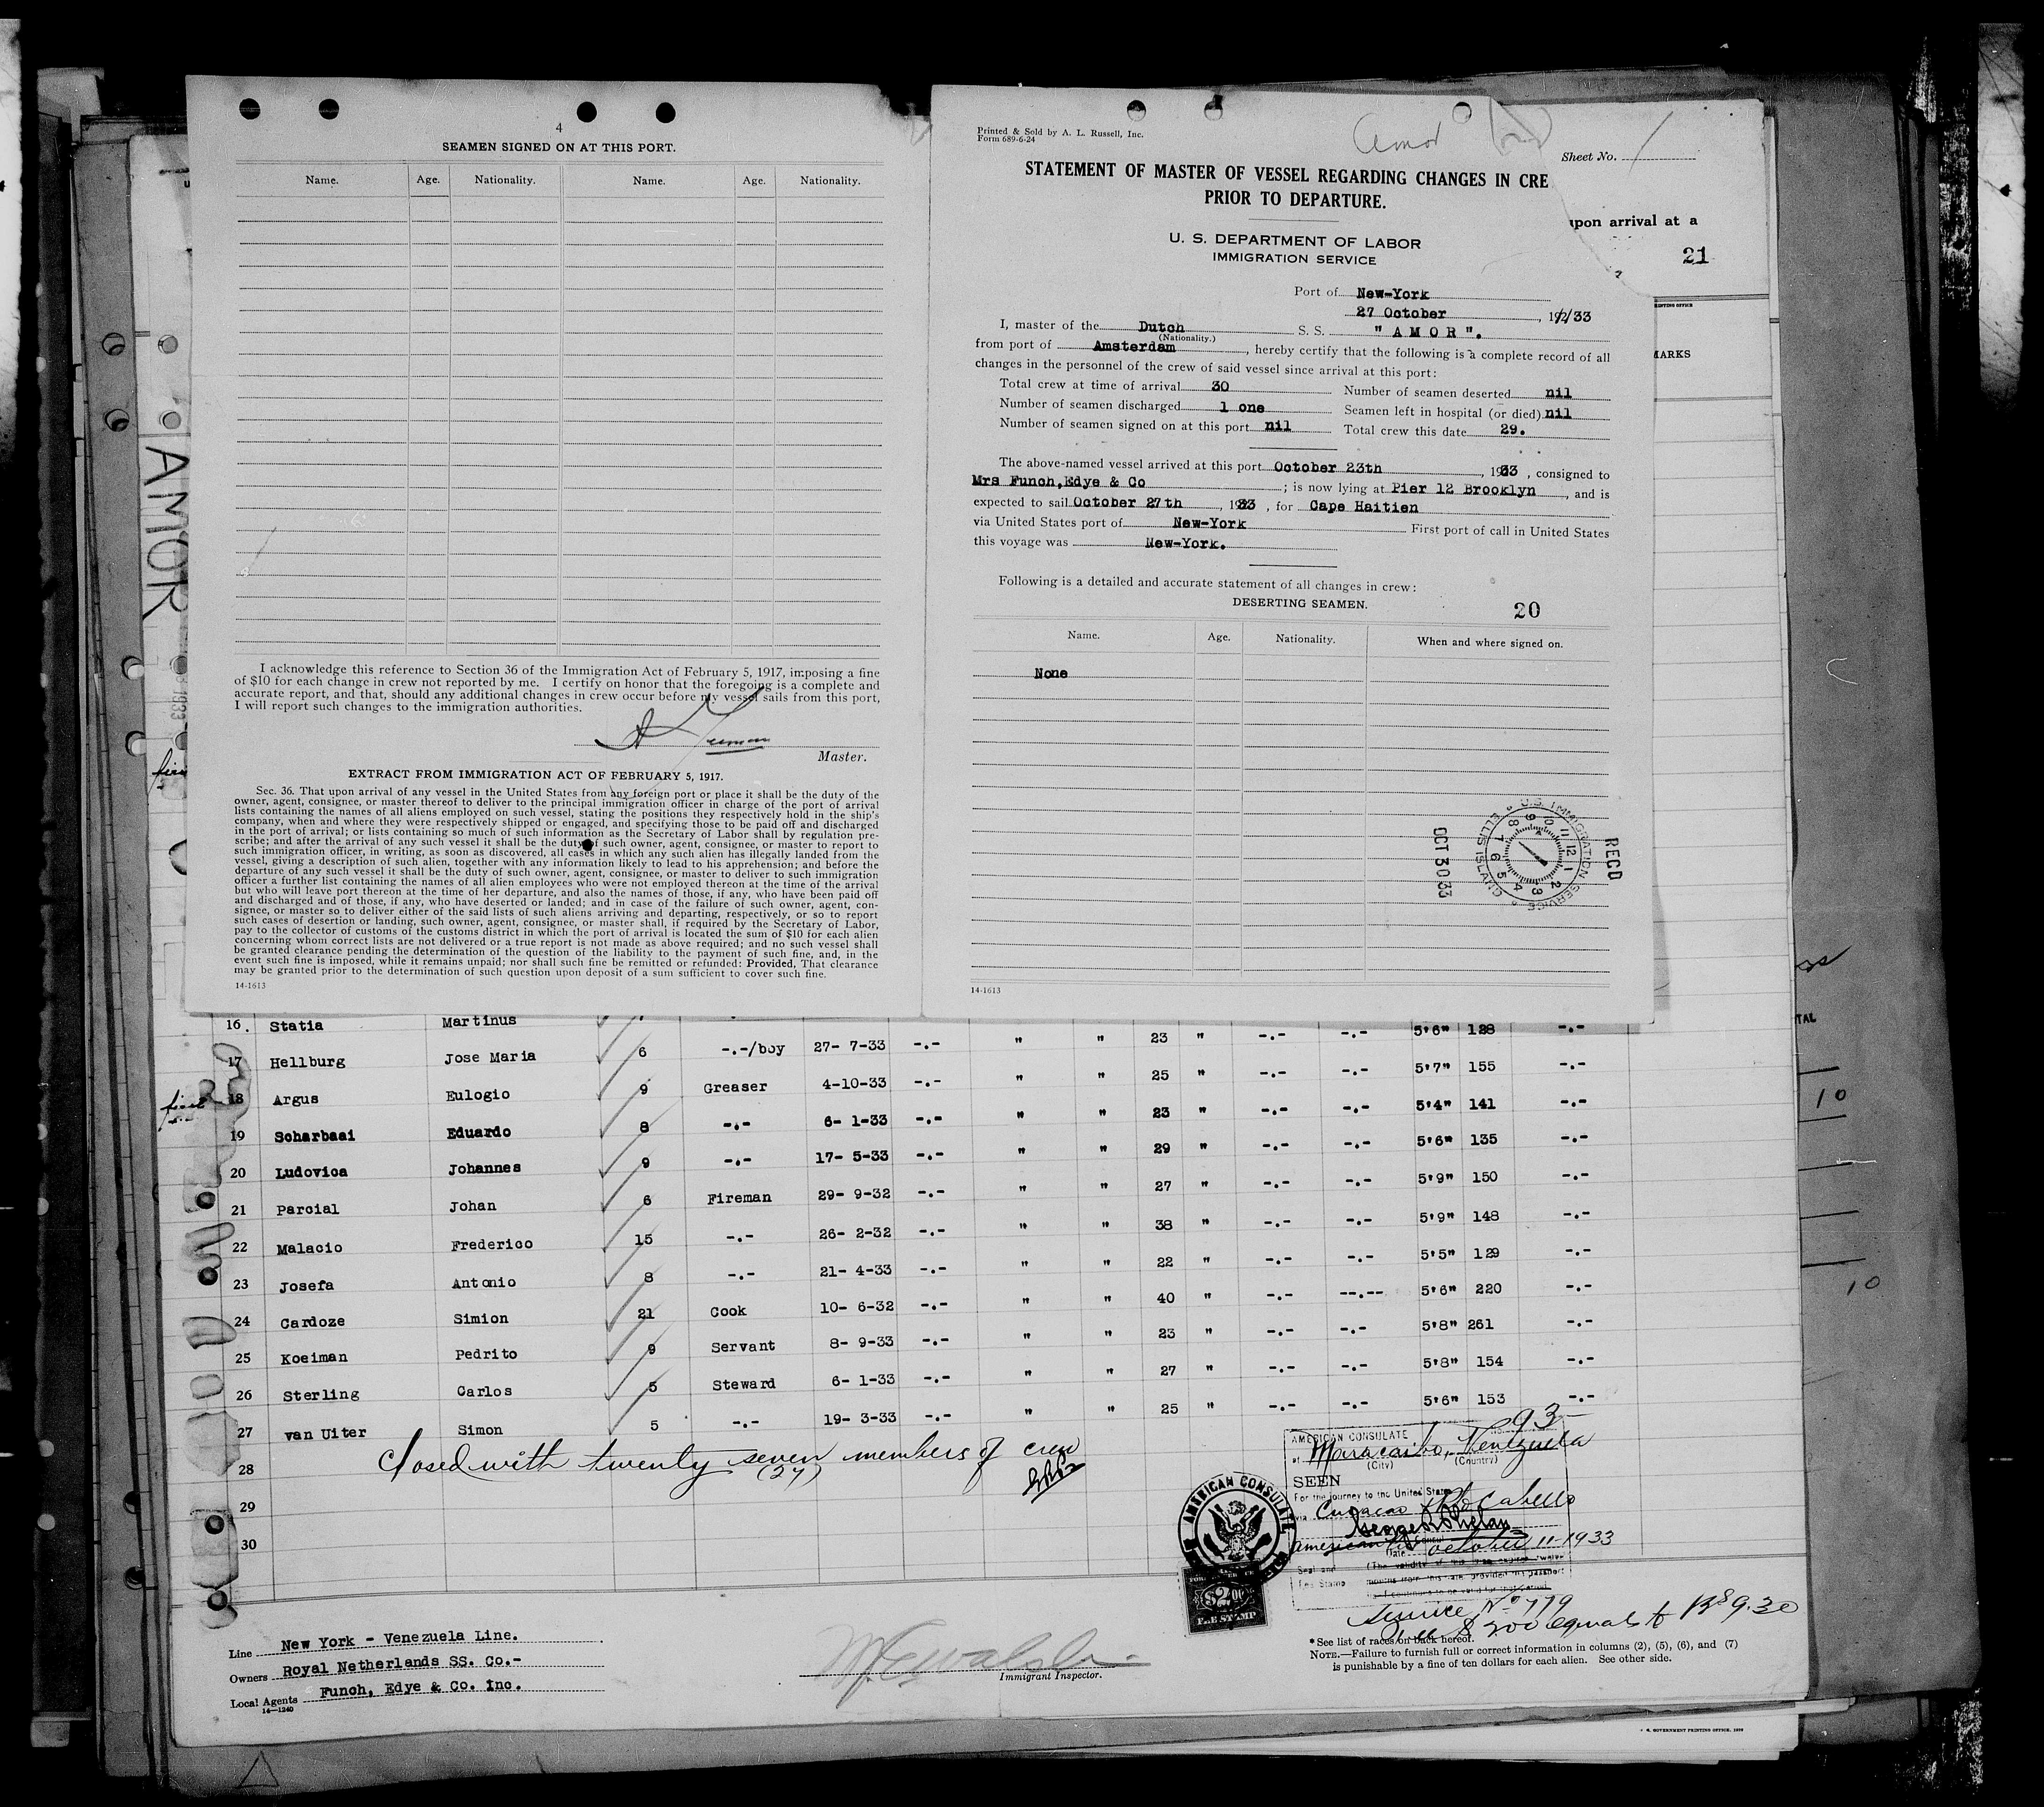 4
SEAMEN SIGNED ON AT THIS PORT.
Name. Age. Nationality. Name. Age. Nationality.
I acknowledge this reference to Section 36 of the Immigration Act of February 5, 1917, imposing a fine
of $10 for each change in crew not reported by me. I certify on honor that the foregoing is a complete and
accurate report, and that, should any additional changes in crew occur before my vessel sails from this port,
I will report such changes to the immigration authorities.
Master.
EXTRACT FROM IMMIGRATION ACT OF FEBRUARY 5, 1917.
Sec. 36. That upon arrival of any vessel in the United States from any foreign port or place it shall be the duty of the
owner, agent, consignee, or master thereof to deliver to the principal immigration officer in charge of the port of arrival
lists containing the names of all aliens employed on such vessel, stating the positions they respectively hold in the ship's
company, when and where they were respectively shipped or engaged, and specifying those to be paid off and discharged
in the port of arrival; or lists containing so much of such information as the Secretary of Labor shall by regulation pre-
scribe; and after the arrival of any such vessel it shall be the duty of such owner, agent, consignee, or master to report to
such immigration officer, in writing, as soon as discovered, all cases in which any such alien has illegally landed from the
vessel, giving a description of such alien, together with any information likely to lead to his apprehension; and before the
departure of any such vessel it shall be the duty of such owner, agent, consignee, or master to deliver to such immigration
officer a further list containing the names of all alien employees who were not employed thereon at the time of the arrival
but who will leave port thereon at the time of her departure, and also the names of those, if any, who have been paid off
and discharged and of those, if any, who have deserted or landed; and in case of the failure of such owner, agent, con-
signee, or master so to deliver either of the said lists of such aliens arriving and departing, respectively, or so to report
such cases of desertion or landing, such owner, agent, consignee, or master shall, if required by the Secretary of Labor,
pay to the collector of customs of the customs district in which the port of arrival is located the sum of $10 for each alien
concerning whom correct lists are not delivered or a true report is not made as above required; and no such vessel shall
be granted clearance pending the determination of the question of the liability to the payment of such fine, and, in the
event such fine is imposed, while it remains unpaid; nor shall such fine be remitted or refunded: Provided, That clearance
may be granted prior to the determination of such question upon deposit of a sum sufficient to cover such fine.
14-1613
AMOR
Printed & Sold by A. L. Russell, Inc.
Form 689-6-24
Amor
Sheet No. 1
STATEMENT OF MASTER OF VESSEL REGARDING CHANGES IN CRE
PRIOR TO DEPARTURE.
upon arrival at a
21
U. S. DEPARTMENT OF LABOR
IMMIGRATION SERVICE
Port of New-York
27 October , 192/33
I, master of the Dutch S. S. " A M O R ".
(Nationality.)
from port of Amsterdam , hereby certify that the following is a complete record of all
changes in the personnel of the crew of said vessel since arrival at this port:
MARKS
Total crew at time of arrival 30 Number of seamen deserted nil
Number of seamen discharged 1 one Seamen left in hospital (or died) nil
Number of seamen signed on at this port nil Total crew this date 29.
The above-named vessel arrived at this port October 23th , 1933 , consigned to
Mrs Funch,Edye & Co ; is now lying at Pier 12 Brooklyn , and is
expected to sail October 27th , 1933 , for Cape Haitien
via United States port of New-York First port of call in United States
this voyage was New-York.
Following is a detailed and accurate statement of all changes in crew:
DESERTING SEAMEN.
20
Name. Age. Nationality. When and where signed on.
None
OCT 30 33
U.S. IMMIGRATION SERVICE ELLIS ISLAND
REC'D
14-1613
16. Statia Martinus 23 " -.- -.- 5'6" 128 -.-
17 Hellburg Jose Maria 6 -.-/boy 27- 7-33 -.- " " 25 " -.- -.- 5'7" 155 -.-
18 Argus Eulogio 9 Greaser 4-10-33 -.- " " 23 " -.- -.- 5'4" 141 -.-
19 Scharbaai Eduardo 8 -.- 6- 1-33 -.- " " 29 " -.- -.- 5'6" 135 -.-
20 Ludovica Johannes 9 -.- 17- 5-33 -.- " " 27 " -.- -.- 5'9" 150 -.-
21 Parcial Johan 6 Fireman 29- 9-32 -.- " " 38 " -.- -.- 5'9" 148 -.-
22 Malacio Frederico 15 -.- 26- 2-32 -.- " " 22 " -.- -.- 5'5" 129 -.-
23 Josefa Antonio 8 -.- 21- 4-33 -.- " " 40 " -.- --.-- 5'6" 220 -.-
24 Cardoze Simion 21 Cook 10- 6-32 -.- " " 23 " -.- -.- 5'8" 261 -.-
25 Koeiman Pedrito 9 Servant 8- 9-33 -.- " " 27 " -.- -.- 5'8" 154 -.-
26 Sterling Carlos 5 Steward 6- 1-33 -.- " " 25 " -.- -.- 5'6" 153 -.-
27 van Uiter Simon 5 -.- 19- 3-33 -.-
28 Closed with twenty seven members of crew
(27)
29
30
10
10
93
AMERICAN CONSULATE
at Maracaibo, Venezuela
(City) (Country)
SEEN
For the journey to the United States
via Curacao & Pto Cabello
George R Phelan
American Vice Consul
Date October 11-1933
Seal and
Fee Stamp
(The validity of this visa expires twelve
months from this date, provided the passport
continues to be valid for that period)
AMERICAN CONSULATE
$2.00
FEE STAMP
Service No 779
Fee $2.00 equals to Bs 9.30
Line New York - Venezuela Line.
Owners Royal Netherlands SS. Co.-
Local Agents Funch, Edye & Co. Inc.
14-1240
Immigrant Inspector.
* See list of races on back hereof.
NOTE.—Failure to furnish full or correct information in columns (2), (5), (6), and (7)
is punishable by a fine of ten dollars for each alien. See other side.
U. S. GOVERNMENT PRINTING OFFICE